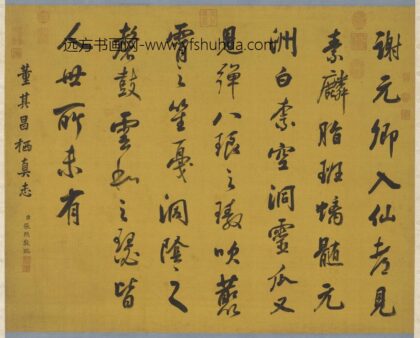 謝元卿入仙見
素麟脂班螭髓元
洲白柰空洞靈瓜又
見彈八琅之璈吹叢
霄之笙戛洞陰之
磬鼓雲和之瑟皆
人世所未有
董其昌栖真志
臣張照敬臨
远方书画网-www.yfshuhua.com